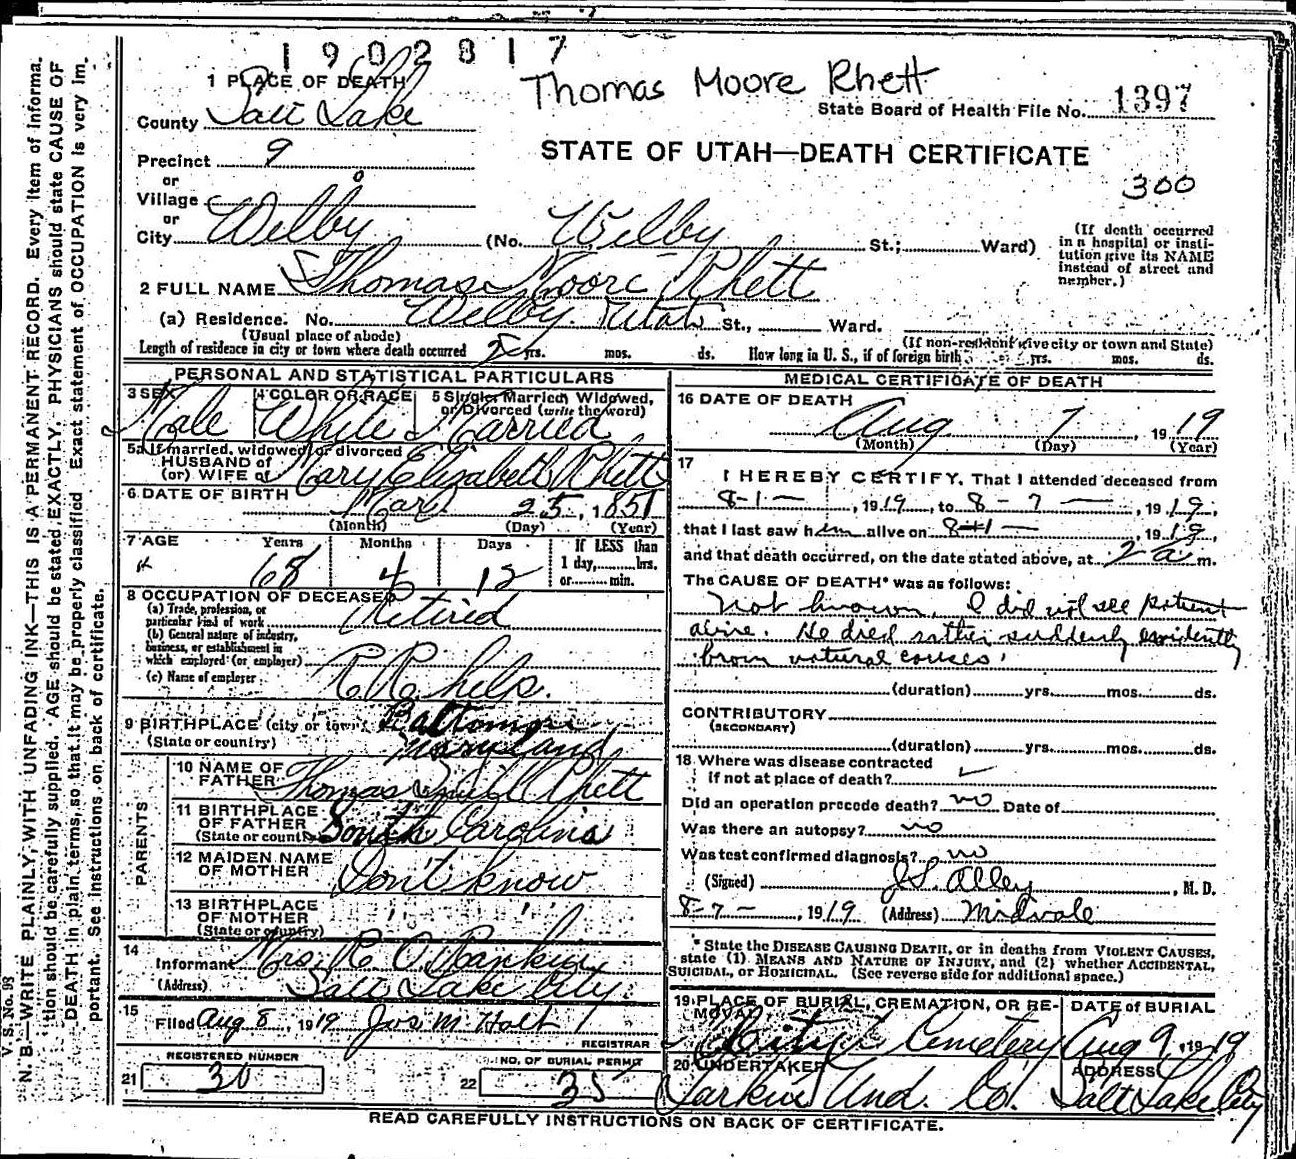 1902817
Thomas Moore Rhett
1 PLACE OF DEATH
State Board of Health File No. 1397
County Salt Lake
STATE OF UTAH—DEATH CERTIFICATE
Precinct 9
300
or
Village
or
City Welby (No. Welby St.; Ward)
(If death occurred in a hospital or institution give its NAME instead of street and number.)
2 FULL NAME Thomas Moore Rhett
(a) Residence. No. Welby. Utah St., Ward.
(Usual place of abode) (If non-resident give city or town and State)
Length of residence in city or town where death occurred yrs. mos. ds. How long in U. S., if of foreign birth yrs. mos. ds.
PERSONAL AND STATISTICAL PARTICULARS
3 SEX Male
4 COLOR OR RACE White
5 Single, Married, Widowed, or Divorced (write the word) Married
5a If married, widowed or divorced
HUSBAND of
(or) WIFE of Mary Elizabeth Rhett
6 DATE OF BIRTH Mar 25, 1851
(Month) (Day) (Year)
7 AGE Years Months Days If LESS than
68 4 12 1 day, hrs.
or min.
8 OCCUPATION OF DECEASED
(a) Trade, profession, or particular kind of work Retired
(b) General nature of industry, business, or establishment in which employed (or employer)
(c) Name of employer
9 BIRTHPLACE (city or town) Baltimore
(State or country) Maryland
PARENTS
10 NAME OF FATHER Thomas Rhett
11 BIRTHPLACE OF FATHER
(State or country) South Carolina
12 MAIDEN NAME OF MOTHER Don't know
13 BIRTHPLACE OF MOTHER
(State or country) " " "
14
Informant Mrs. R. O. Rankin
(Address) Salt Lake City
15
Filed Aug 8, 1919 Jos. M. Holt
REGISTRAR
REGISTERED NUMBER
21 30
NO. OF BURIAL PERMIT
22 35
MEDICAL CERTIFICATE OF DEATH
16 DATE OF DEATH
Aug 7, 1919
(Month) (Day) (Year)
17
I HEREBY CERTIFY, That I attended deceased from
8-1—, 1919, to 8-7—, 1919,
that I last saw him alive on 8-1—, 1919,
and that death occurred, on the date stated above, at 2 a m.
The CAUSE OF DEATH* was as follows:
Not known. I did not see patient
alive. He died rather suddenly evidently
from natural causes.
(duration) yrs. mos. ds.
CONTRIBUTORY
(SECONDARY)
(duration) yrs. mos. ds.
18 Where was disease contracted
if not at place of death?
Did an operation precede death? no Date of
Was there an autopsy? no
Was test confirmed diagnosis? no
(Signed) J.S. Alley, M. D.
8-7-, 1919 (Address) Midvale
* State the DISEASE CAUSING DEATH, or in deaths from VIOLENT CAUSES,
state (1) MEANS AND NATURE OF INJURY, and (2) whether ACCIDENTAL,
SUICIDAL, or HOMICIDAL. (See reverse side for additional space.)
19 PLACE OF BURIAL, CREMATION, OR REMOVAL City Cemetery
DATE OF BURIAL
Aug 9, 1919
20 UNDERTAKER
Larkin Und. Co.
ADDRESS
Salt Lake City
READ CAREFULLY INSTRUCTIONS ON BACK OF CERTIFICATE.
V. S. No. 93
N. B.—WRITE PLAINLY, WITH UNFADING INK—THIS IS A PERMANENT RECORD. Every item of informa-
tion should be carefully supplied. AGE should be stated EXACTLY. PHYSICIANS should state CAUSE OF
DEATH in plain terms, so that it may be properly classified. Exact statement of OCCUPATION is very im-
portant. See instructions on back of certificate.